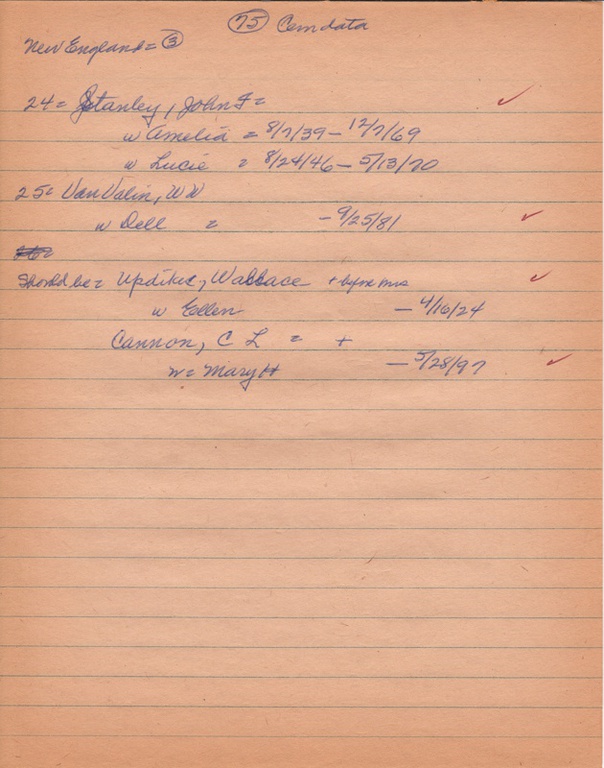 (75) Cemdata
New England = (3)
24 = Stanley, John F =
w Amelia = 8/7/39 - 12/7/69
w Lucie = 8/24/46 - 5/13/70
25 = Van Valin, W W
w Dell = - 9/25/81
Should be = Updike, Wallace +
w Ellen - 4/16/24
Cannon, C L = +
w = Mary H - 5/28/97